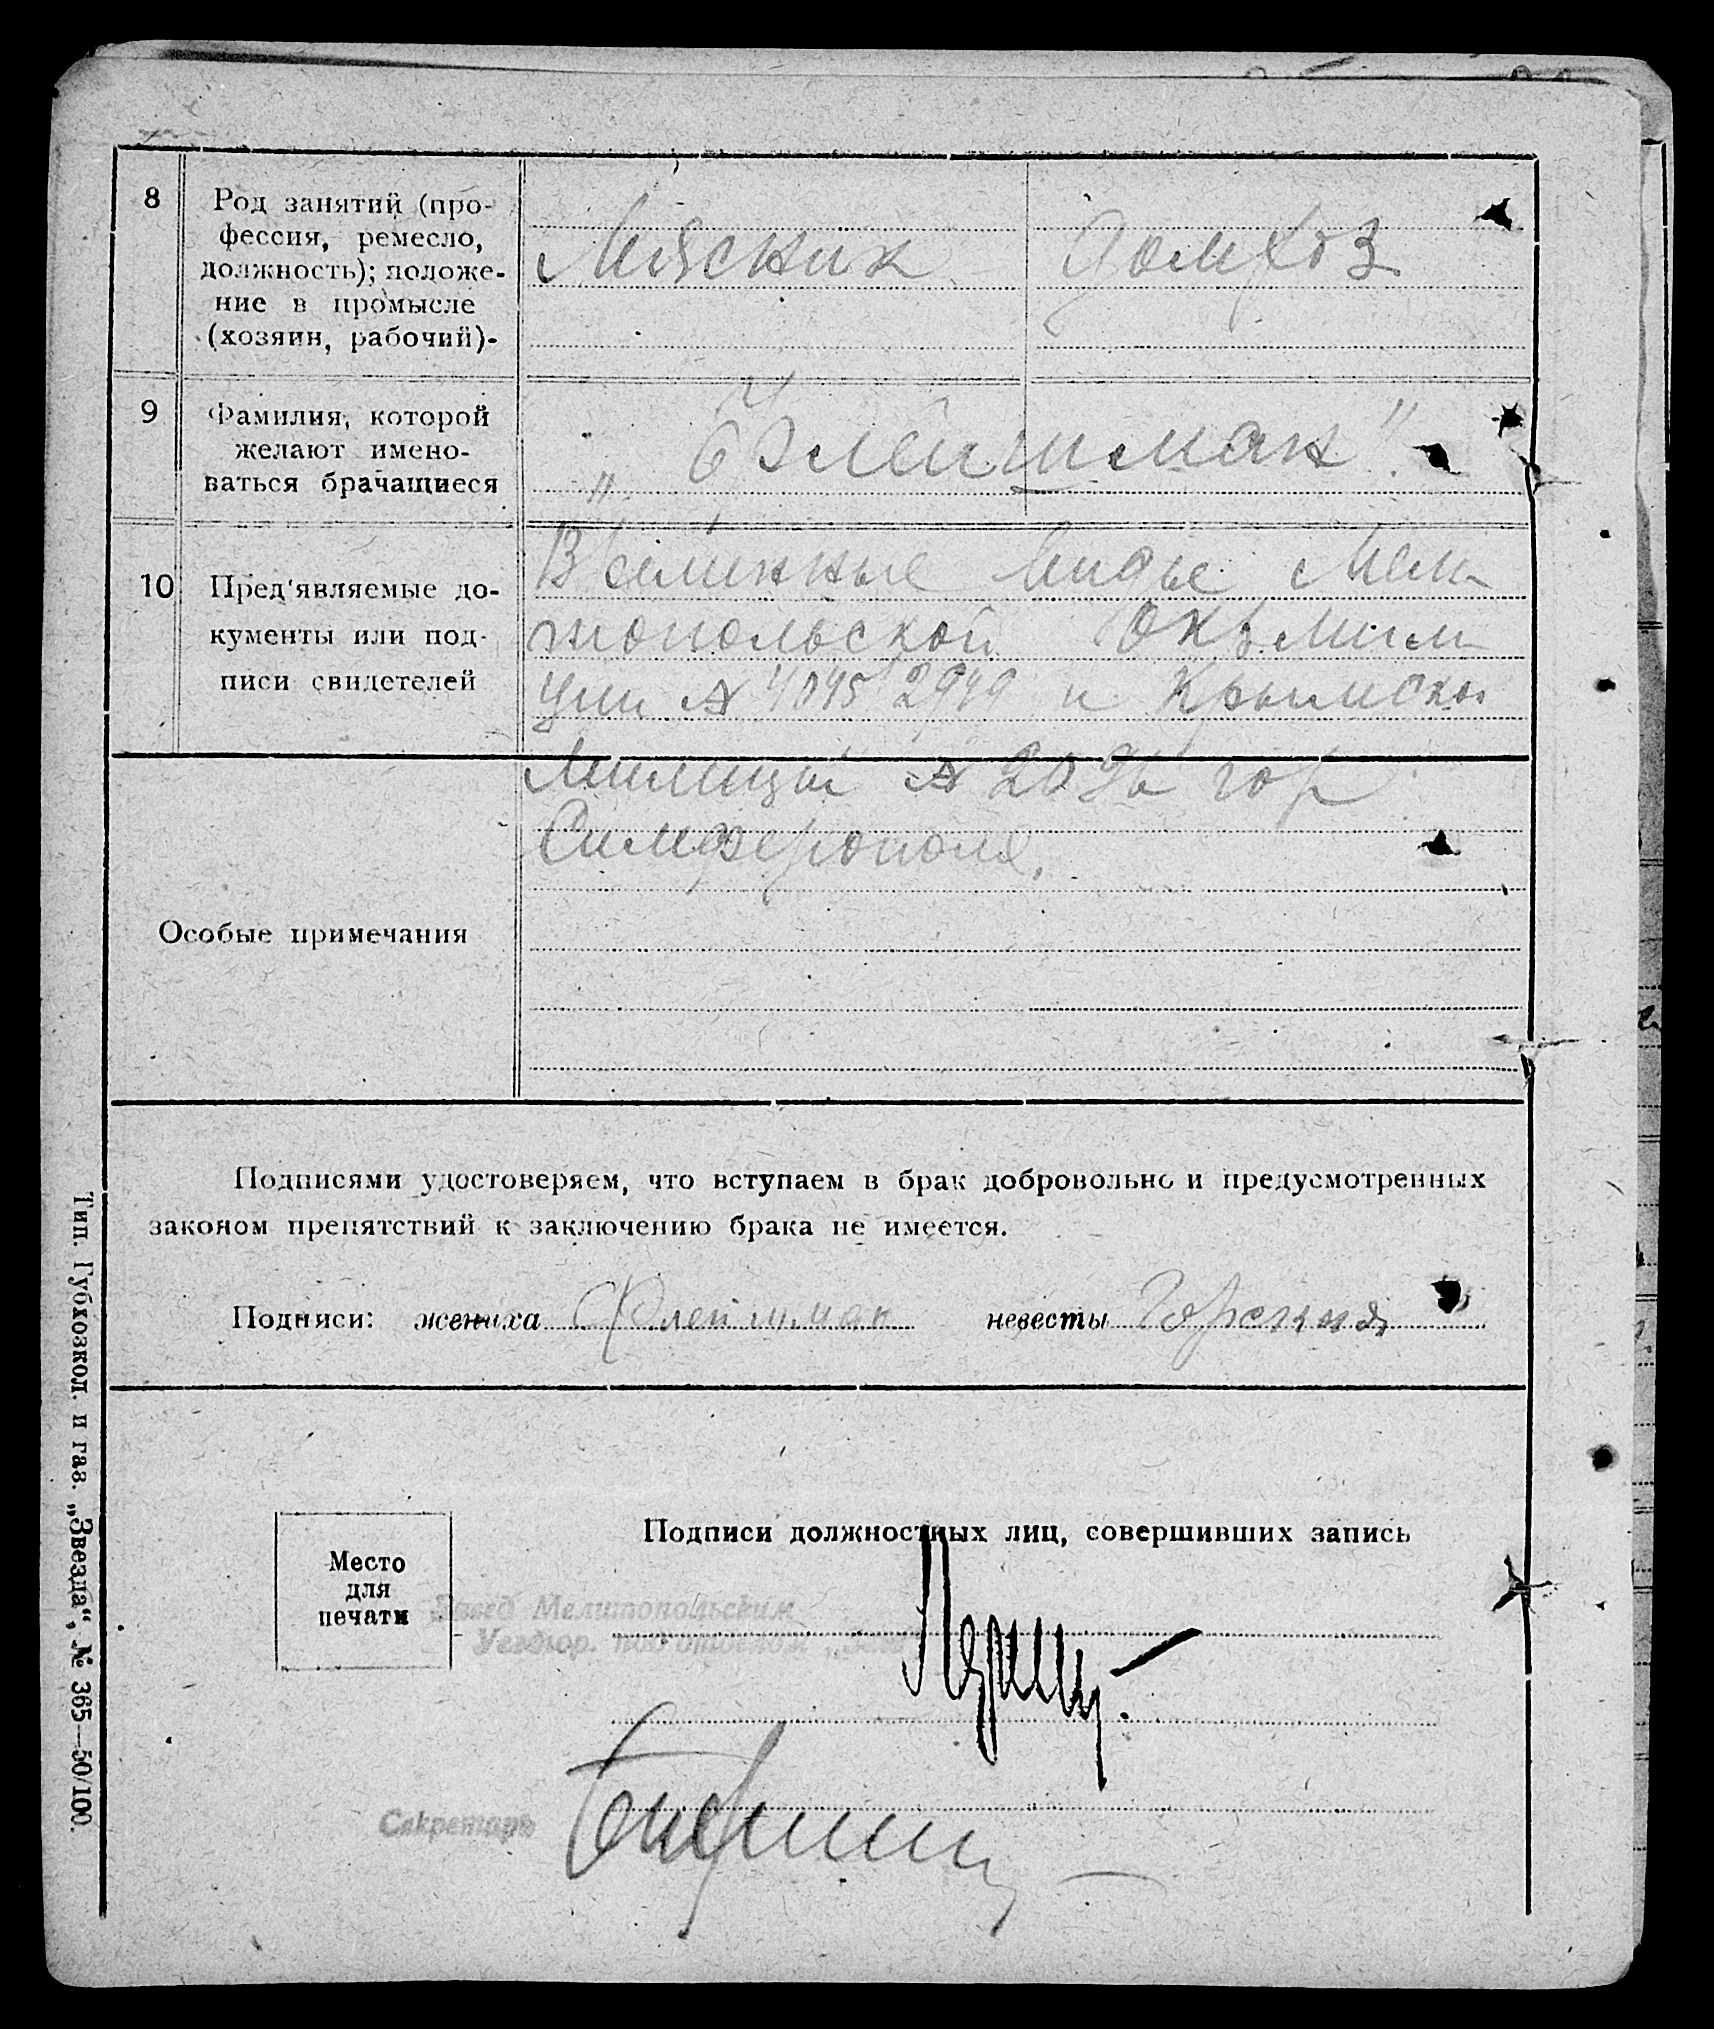 8
Род занятий (про-
фессия, ремесло,
должность); положе-
ние в промысле
(хозяин, рабочий)-
Мясник
Домхоз
9
Фамилия, которой
желают имено-
ваться брачащиеся
„Флейшман“
10
Пред'являемые до-
кументы или под-
писи свидетелей
Временные виды Мели-
топольской Окр. Мили-
ции № 4045 2949 и Крымской
Милиции № гор
Симферополя.
Особые примечания
Подписями удостоверяем, что вступаем в брак добровольно и предусмотренных
законом препятствий к заключению брака не имеется.
Подписи: жениха Флейшман невесты
Подписи должностных лиц, совершивших запись
Место
для
печати
Завед Мелитопольским
подотделом
Секретарь
Тип. Губхозкол. и газ. „Звезда“, № 365—50/100.